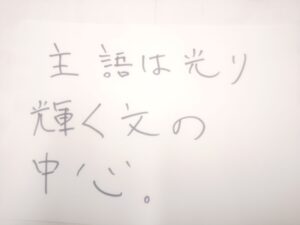 主語は光り
輝く文の
中心。